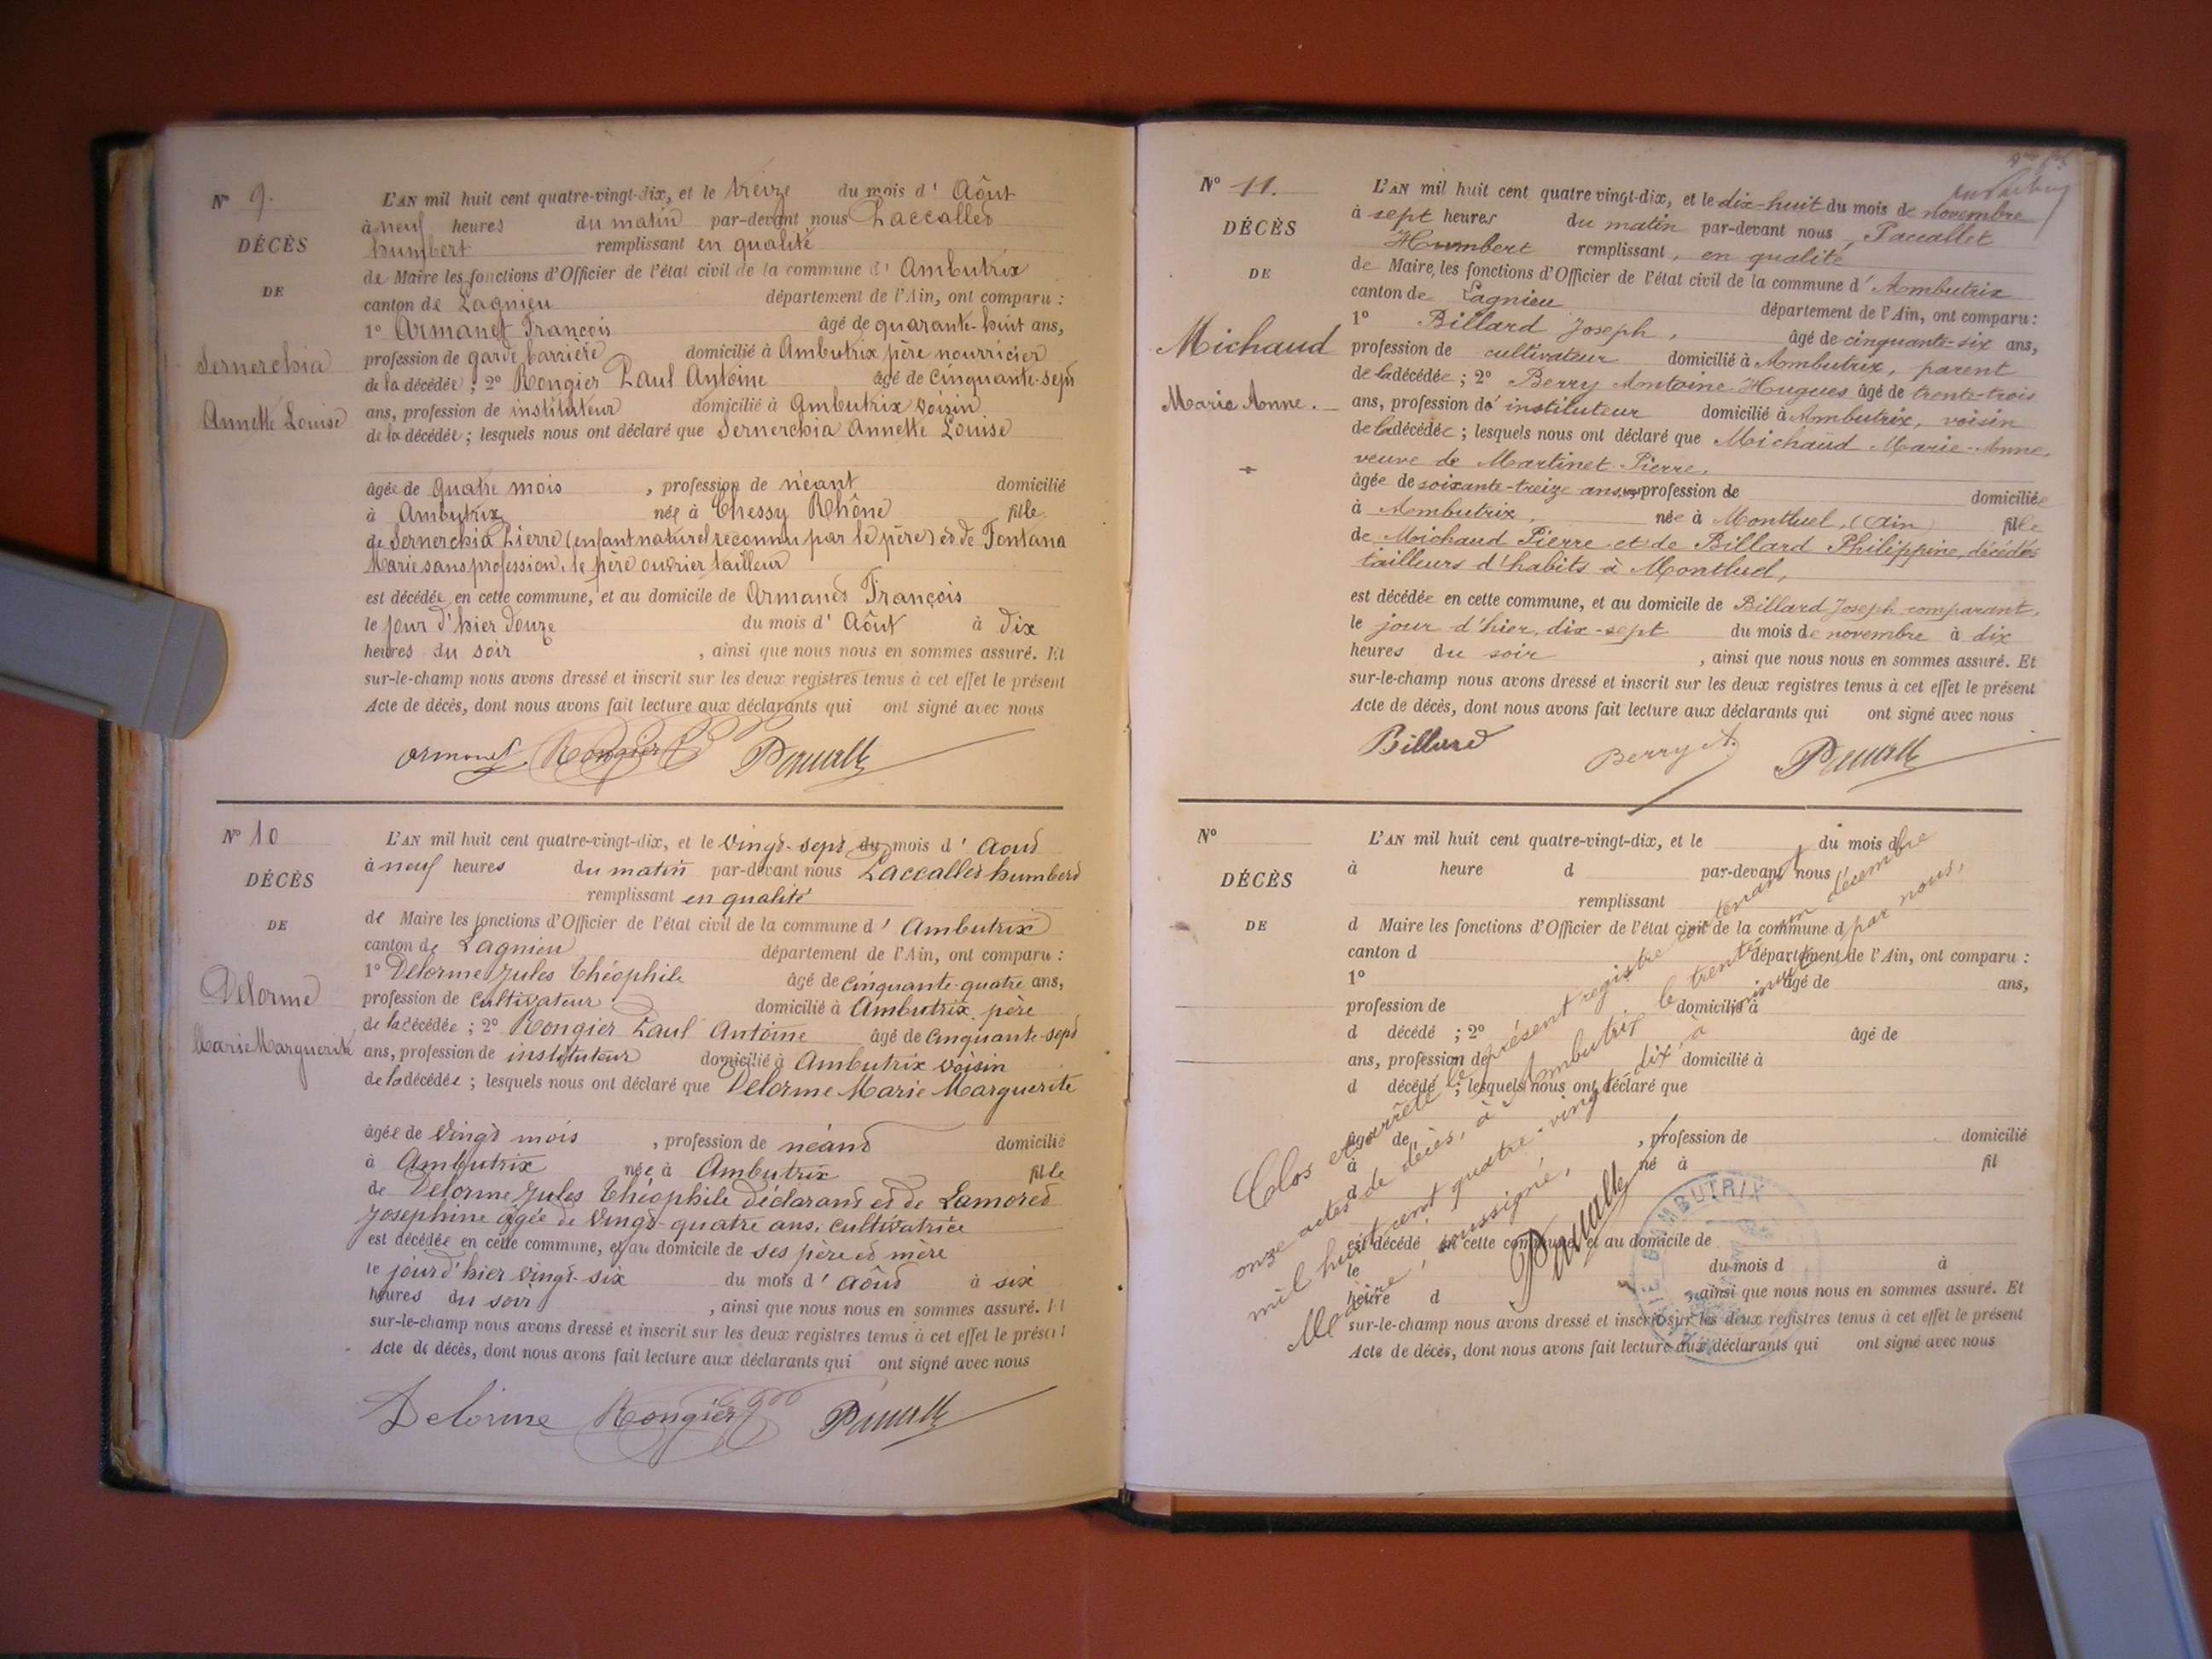 N° 9.
DÉCÈS
DE
Sernerchia
Annette Louise
L'AN mil huit cent quatre-vingt-dix, et le treize du mois d' Aôut
à neuf heures du matin par-devant nous Paccallet
humbert remplissant en qualité
de Maire les fonctions d'Officier de l'état civil de la commune d' Ambutrix
canton de Lagnieu département de l'Ain, ont comparu :
1° Armanet François âgé de quarante-huit ans,
profession de garde barrière domicilié à Ambutrix père nourricier
de la décédée ; 2° Rongier Paul Antoine âgé de cinquante-sept
ans, profession de instituteur domicilié à Ambutrix voisin
de la décédée ; lesquels nous ont déclaré que Sernerchia Annette Louise
âgée de quatre mois , profession de néant domicilié
à Ambutrix née à Chessy Rhône fille
de Sernerchia Pierre (enfant naturel reconnu par le père) et de Fontana
Marie sans profession, le père ouvrier tailleur
est décédée en cette commune, et au domicile de Armanet François
le jour d'hier douze du mois d' Aôut à dix
heures du soir , ainsi que nous nous en sommes assuré. Et
sur-le-champ nous avons dressé et inscrit sur les deux registres tenus à cet effet le présent
Acte de décès, dont nous avons fait lecture aux déclarants qui ont signé avec nous
Armanet Rongier Paccallet
N° 10
DÉCÈS
DE
Delorme
Marie Marguerite
L'AN mil huit cent quatre-vingt-dix, et le vingt-sept du mois d' Aout
à neuf heures du matin par-devant nous Paccallet humbert
remplissant en qualité
de Maire les fonctions d'Officier de l'état civil de la commune d' Ambutrix
canton de Lagnieu département de l'Ain, ont comparu :
1° Delorme Jules Théophile âgé de cinquante-quatre ans,
profession de cultivateur domicilié à Ambutrix père
de la décédée ; 2° Rongier Paul Antoine âgé de cinquante-sept
ans, profession de instituteur domicilié à Ambutrix voisin
de la décédée ; lesquels nous ont déclaré que Delorme Marie Marguerite
âgée de vingt mois , profession de néant domicilié
à Ambutrix née à Ambutrix fille
de Delorme Jules Théophile déclarant et de Lamoret
Josephine agée de vingt-quatre ans, cultivatrice
est décédée en cette commune, et au domicile de ses père et mère
le jour d'hier vingt-six du mois d' Aôut à six
heures du soir , ainsi que nous nous en sommes assuré. Et
sur-le-champ nous avons dressé et inscrit sur les deux registres tenus à cet effet le présent
Acte de décès, dont nous avons fait lecture aux déclarants qui ont signé avec nous
Delorme Rongier Paccallet
N° 11.
DÉCÈS
DE
Michaud
Marie Anne.
L'AN mil huit cent quatre vingt-dix, et le dix-huit du mois de novembre
à sept heures du matin par-devant nous, Paccallet
Humbert remplissant, en qualité
de Maire, les fonctions d'Officier de l'état civil de la commune d' Ambutrix
canton de Lagnieu département de l'Ain, ont comparu :
1° Billard Joseph, âgé de cinquante-six ans,
profession de cultivateur domicilié à Ambutrix, parent
de la décédée ; 2° Berry Antoine Hugues âgé de trente-trois
ans, profession d' instituteur domicilié à Ambutrix, voisin
de la décédée ; lesquels nous ont déclaré que Michaud Marie-Anne,
veuve de Martinet Pierre,
âgée de soixante-treize ans, profession de domiciliée
à Ambutrix, née à Montluel, (Ain) fille
de Michaud Pierre et de Billard Philippine, décédés
tailleurs d'habits à Montluel,
est décédée en cette commune, et au domicile de Billard Joseph comparant,
le jour d'hier, dix-sept du mois de novembre à dix
heures du soir , ainsi que nous nous en sommes assuré. Et
sur-le-champ nous avons dressé et inscrit sur les deux registres tenus à cet effet le présent
Acte de décès, dont nous avons fait lecture aux déclarants qui ont signé avec nous
Billard Berry A. Paccallet
N°
DÉCÈS
DE
L'AN mil huit cent quatre-vingt-dix, et le du mois d
à heure d par-devant nous
remplissant
d Maire les fonctions d'Officier de l'état civil de la commune d
canton d département de l'Ain, ont comparu :
1° âgé de ans,
profession de domicilié à
d décédé ; 2° âgé de
ans, profession de domicilié à
d décédé ; lesquels nous ont déclaré que
âgé de , profession de domicilié
à né à fil
d
est décédé en cette commune, et au domicile de
le du mois d à
heure d , ainsi que nous nous en sommes assuré. Et
sur-le-champ nous avons dressé et inscrit sur les deux registres tenus à cet effet le présent
Acte de décès, dont nous avons fait lecture aux déclarants qui ont signé avec nous
Clos et arrêté le présent registre contenant
onze actes de décès, à Ambutrix le trente et un décembre
mil huit cent quatre-vingt-dix, à minuit par nous,
Maire, soussigné,
Paccallet
MAIRIE D'AMBUTRIX